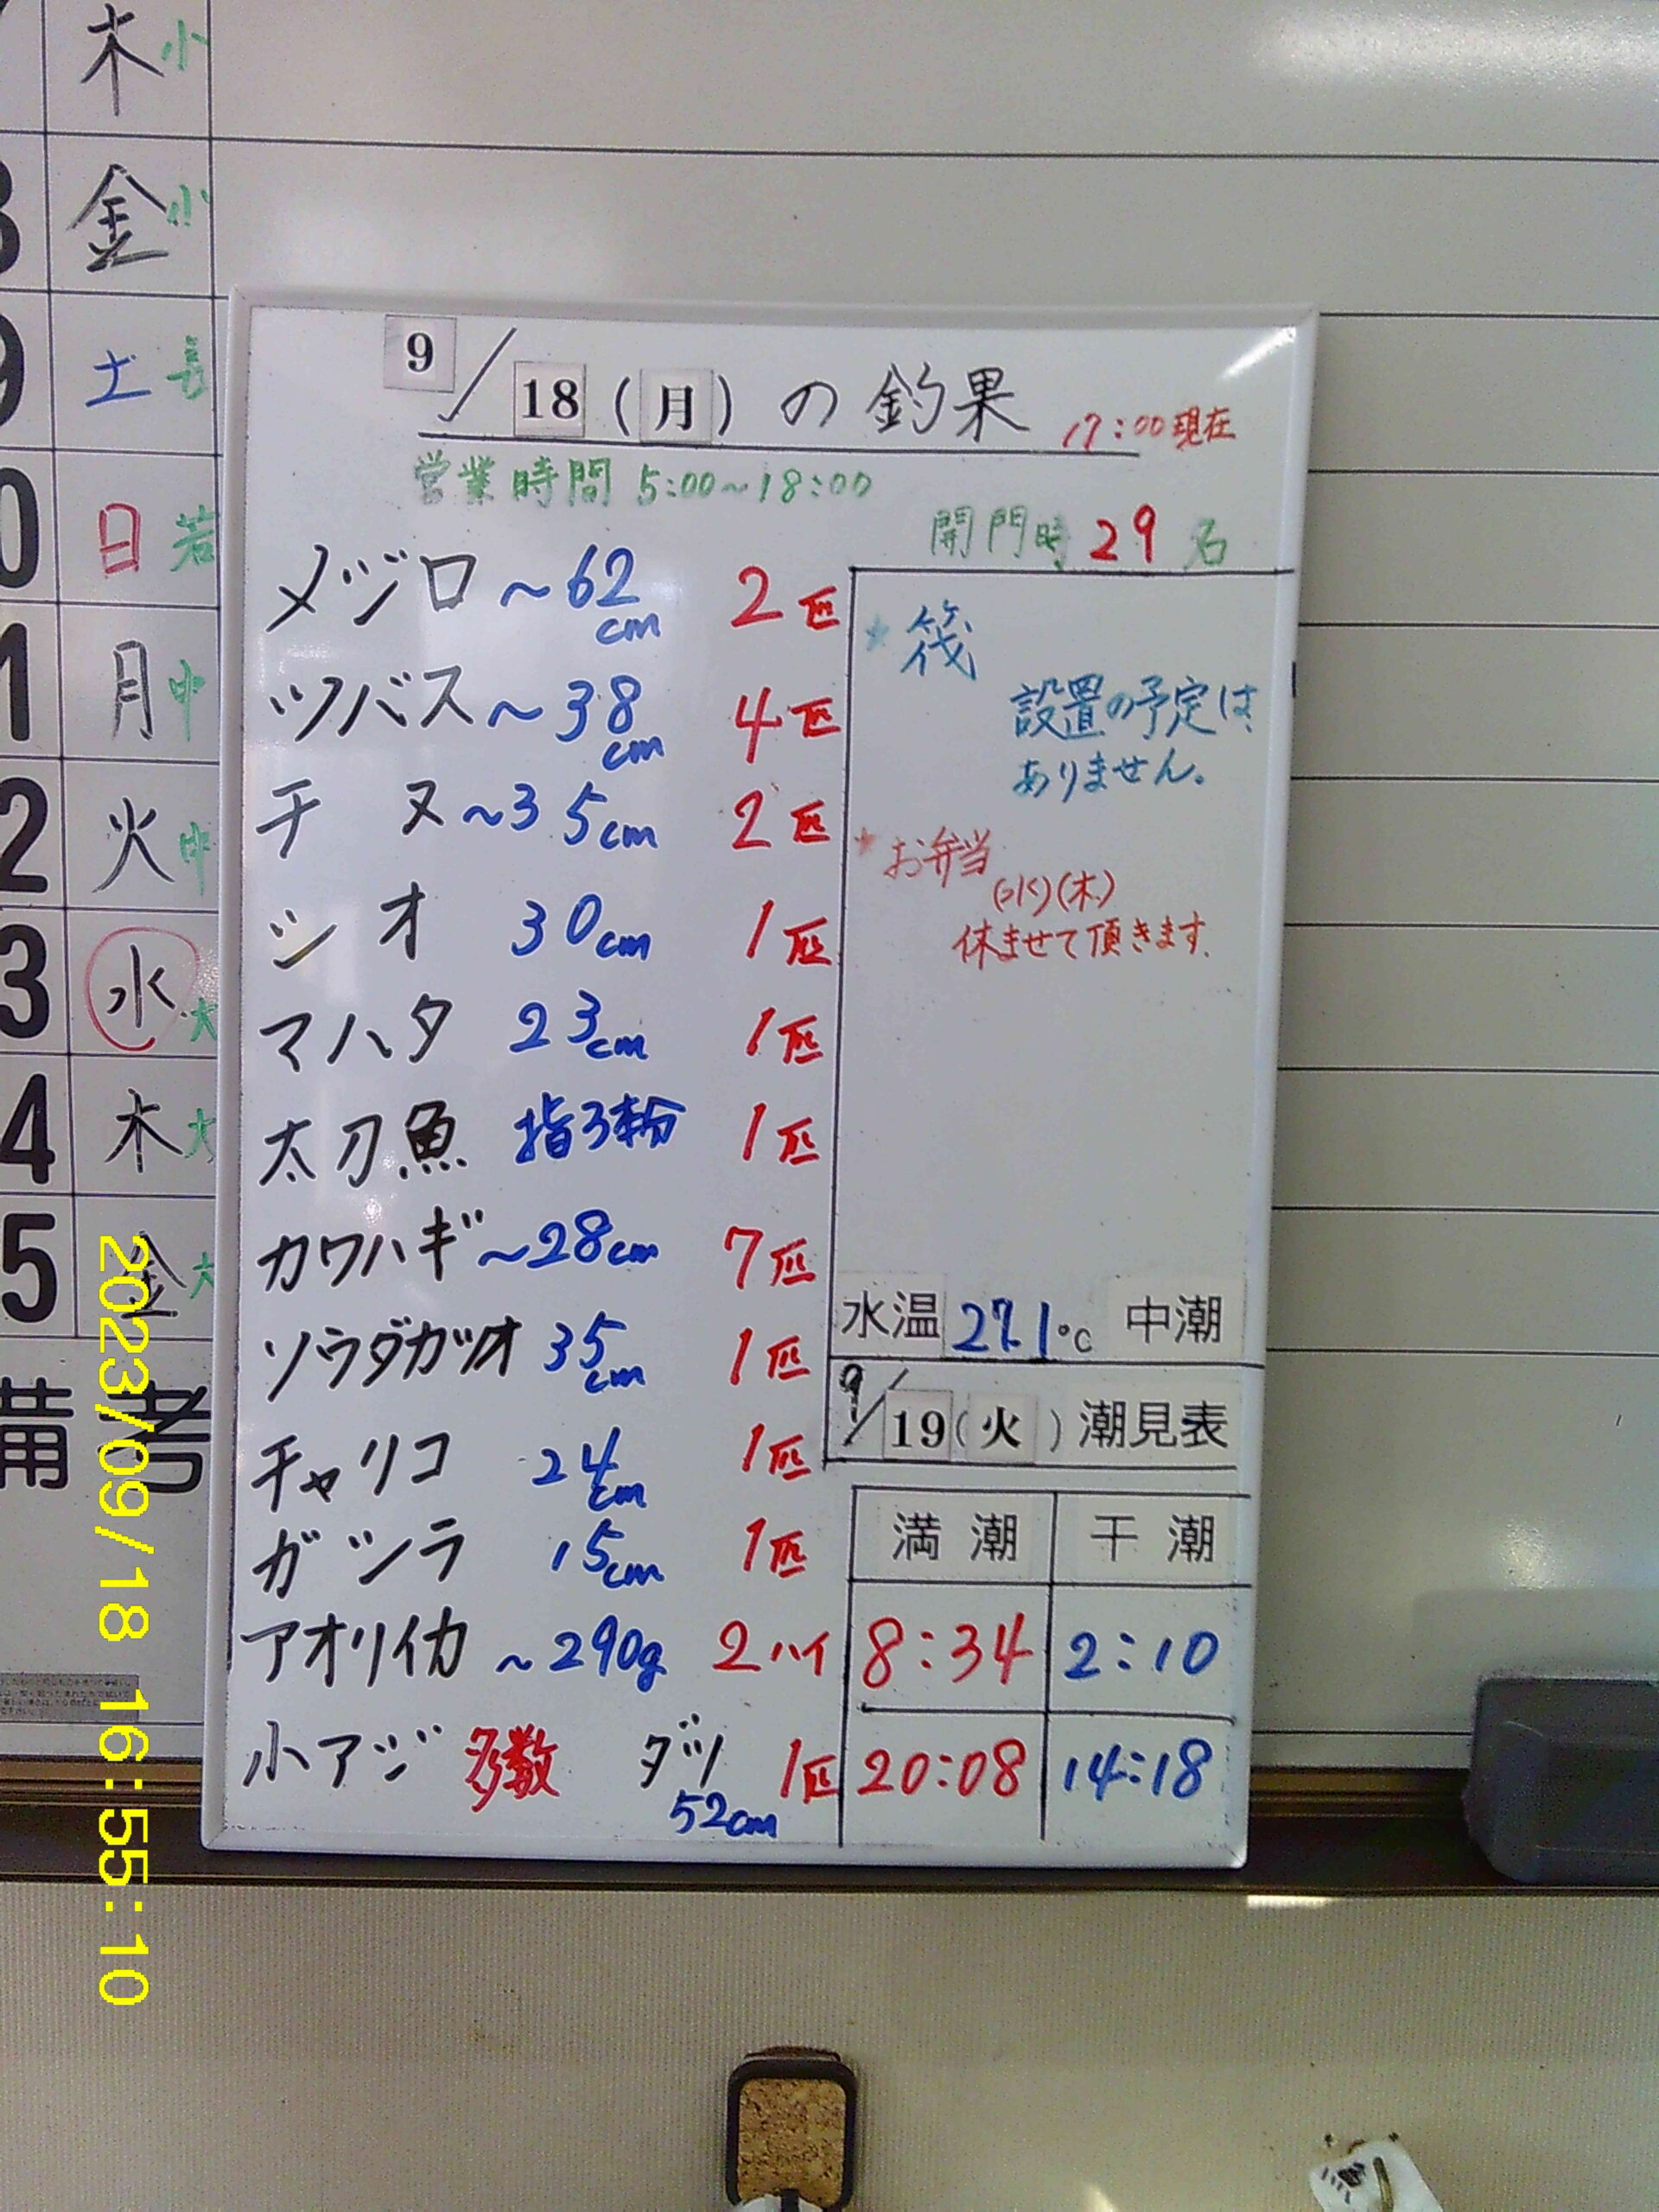 木 小
金 小
土 長
日 若
月 中
2 火 中
3 水 大
4 木 大
5 金 大
備考
9/18(月)の釣果 17:00現在
営業時間 5:00~18:00
開門時 29名
メジロ ~62cm 2匹
ツバス ~38cm 4匹
チヌ ~35cm 2匹
シオ 30cm 1匹
マハタ 23cm 1匹
太刀魚 指3本 1匹
カワハギ ~28cm 7匹
ソウダガツオ 35cm 1匹
チャリコ 24cm 1匹
ガシラ 15cm 1匹
アオリイカ ~290g 2ハイ
小アジ 多数 ダツ 52cm 1匹
*筏
設置の予定は
ありません。
*お弁当
(水)(木)
休ませて頂きます.
水温 27.1℃ 中潮
9/19(火)潮見表
満潮 干潮
8:34 2:10
20:08 14:18
2023/09/18 16:55:10